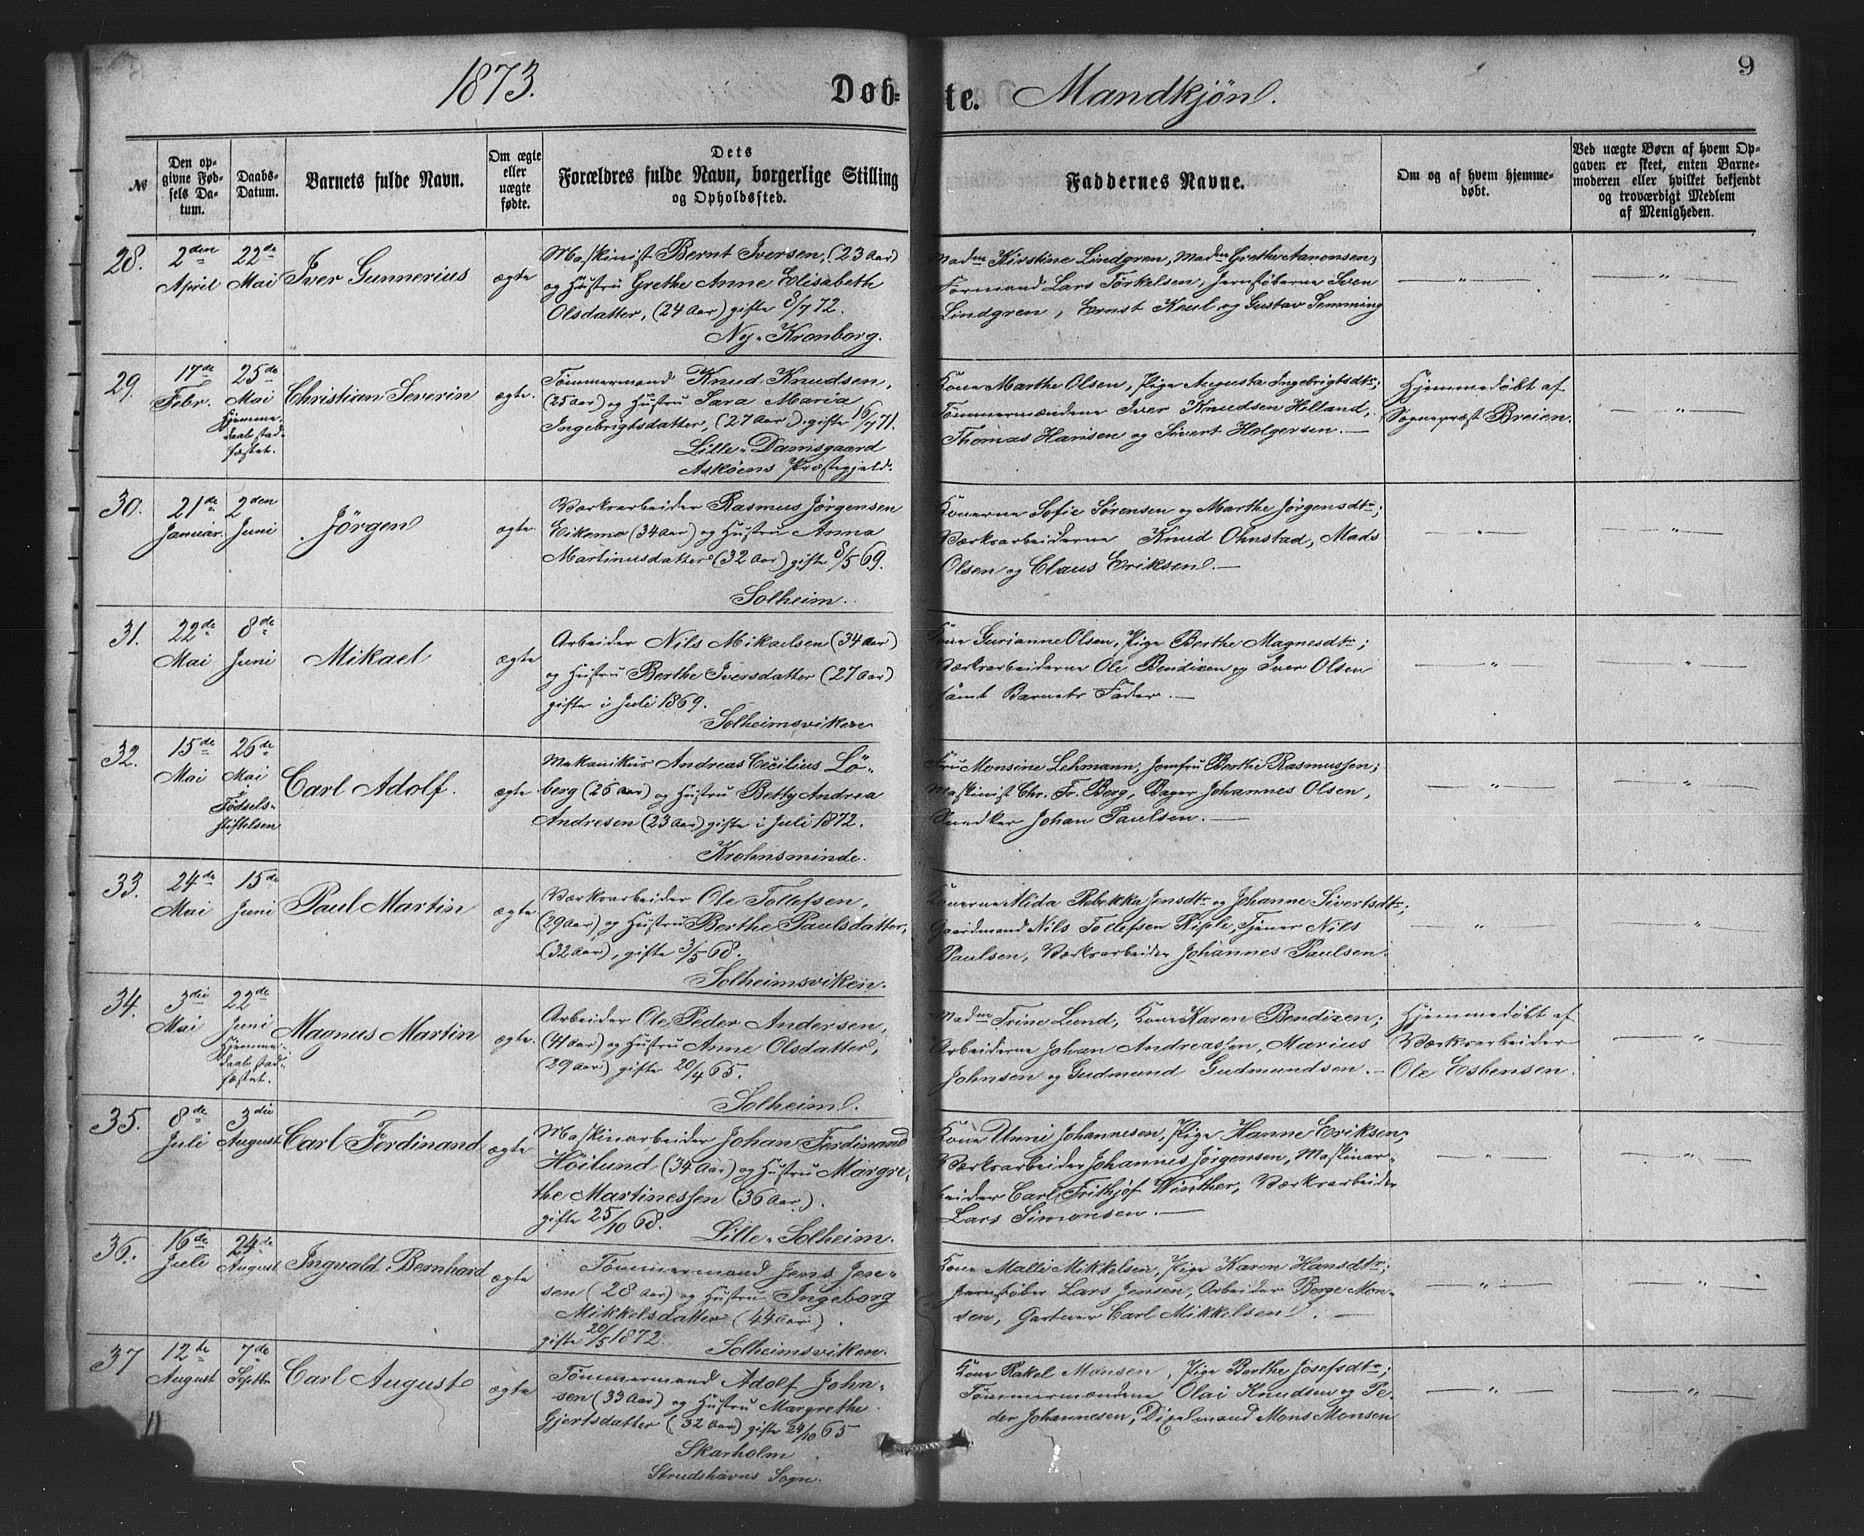 1873. Døb= te. Mandkjøn. 9
№
Den op-
givne Fød-
sels Da-
tum.
Daabs-
Datum.
Barnets fulde Navn.
Om ægte
eller
uægte
fødte.
Dets
Forældres fulde Navn, borgerlige Stilling
og Opholdssted.
Faddernes Navne.
Om og af hvem hjemme-
døbt.
Ved uægte Børn af hvem Op-
gaven er skeet, enten Barne-
moderen eller hvilket bekjendt
og troværdigt Medlem
af Menigheden.
28.
2den
April
22de
Mai
Iver Gunnerius
ægte
Maskinist Bernt Iversen, (23 Aar)
og Hustru Grethe Anne Elisabeth
Olsdatter, (24 Aar) gifte 8/7 72.
Ny-Kronborg.
Madm Kirstine Lindgren, Madm Grethe Aanonsen;
Formand Lars Törkelsen, Jernstøberne Sven
Lindgren, Ernst Knul og Gustav Semming
— " —
— " —
29.
17de
Febr.
25de
Mai
Hjemme-
daab stad-
fæstet.
Christian Severin
ægte.
Tømmermand Knud Knudsen,
(25 Aar) og Hustru Sara Maria
Ingebrigtsdatter, (27 Aar), gifte 16/7 71.
Lille-Damsgaard
Askøens Præstegjeld.
Kone Marthe Olsen, Pige Augusta Ingebrigtsdtr;
Tømmermændene Iver Knudsen Hilland,
Thomas Hansen og Sivert Holgersen. —
Hjemmedøbt af
Sognepræst Breien.
— " —
30.
21de
Januar.
2den
Juni
Jörgen
ægte.
Værksarbeider Rasmus Jørgensen
Eikemo (34 Aar) og Hustru Anna
Martinusdatter (32 Aar) gifte 8/5 69.
Solheim.
Konerne Sofie Sørensen og Marthe Jørgensdtr;
Værksarbeiderne Knud Ohnstad, Mads
Olsen og Claus Eriksen. —
— " —
— " —
31.
22de
Mai
8de
Juni
Mikael
ægte
Arbeider Nils Mikaelsen (34 Aar)
og Hustru Berthe Iversdatter (27 Aar)
gifte i Juli 1869.
Solheimsviken
Kone Gurianne Olsen, Pige Berthe Magnesdtr;
Værksarbeiderne Ole Bendixen og Iver Olsen
samt Barnets Fader. —
— " —
— " —
32.
15de
Mai
26de
Mai
i
Fødsels-
stiftelsen
Carl Adolf.
ægte
Mekanikus Andreas Cecilius Lö-
berg (26 Aar) og Hustru Betty Andrea
Andresen (23 Aar) gifte i Juli 1872.
Krohnsminde.
Fru Monsine Lehmann, Jomfru Berthe Rasmussen;
Maskinist Chr. Fr. Berg, Bager Johannes Olsen,
Snedker Johan Paulsen. —
— " —
— " —
33.
24de
Mai
15de
Juni
Paul Martin
ægte
Værksarbeider Ole Tollefsen,
(29 Aar) og Hustru Berthe Paulsdatter,
(32 Aar), gifte 3/5 68.
Solheimsviken.
Konerne Alida Rebekka Jensdtr og Johanne Sivertsdtr;
Gaardmand Nils Tollefsen Riple, Tjener Nils
Paulsen, Værksarbeider Johannes Paulsen.
— " —
— " —
34.
3die
Mai
22de
Juni
Hjemme-
daab stad-
fæstet.
Magnus Martin
ægte.
Arbeider Ole Peder Andersen,
(41 Aar) og Hustru Anne Olsdatter,
(29 Aar) gifte 20/4 65.
Solheim.
Madm Trine Lund, Kone Karen Bendixen;
Arbeiderne Johan Andreassen, Marius
Johnsen og Gudmund Gudmundsen. —
Hjemmedøbt af
Værksarbeider
Ole Esbensen.
— " —
35.
8de
Juli
3die
August
Carl Ferdinand
ægte
Maskinarbeider Johan Ferdinand
Höilund (34 Aar) og Hustru Margre-
the Martinessen (36 Aar).
gifte 25/10 68.
Lille-Solheim.
Kone Unni Johannesen, Pige Hanne Eriksen;
Værksarbeider Johannes Jørgensen, Maskinar-
beider Carl Frithjof Winther, Værksarbeider
Lars Simonsen. —
— " —
— " —
36.
16de
Juli
24de
August
Ingvald Bernhard
ægte
Tømmermand Jens Jen-
sen (28 Aar) og Hustru Ingeborg
Mikkelsdatter (44 Aar).
gifte 20/5 1872.
Solheimsviken.
Kone Malli Mikkelsen, Pige Karen Hansdtr;
Jernstøber Lars Jensen, Arbeider Berge Mon-
sen, Gartner Carl Mikkelsen. —
— " —
— " —
37
12te
August
7de
Septbr
Carl August
ægte
Tømmermand Adolf John-
sen (33 Aar) og Hustru Margrethe
Gjertsdatter (32 Aar) gifte 24/10 65
Skarholm
Strudshavns Sogn.
Kone Rakel Monsen, Pige Berthe Josefsdtr;
Tømmermændene Olai Knudsen og Pe-
der Johannesen, Dixelmand Mons Monsen
— " —
— " —